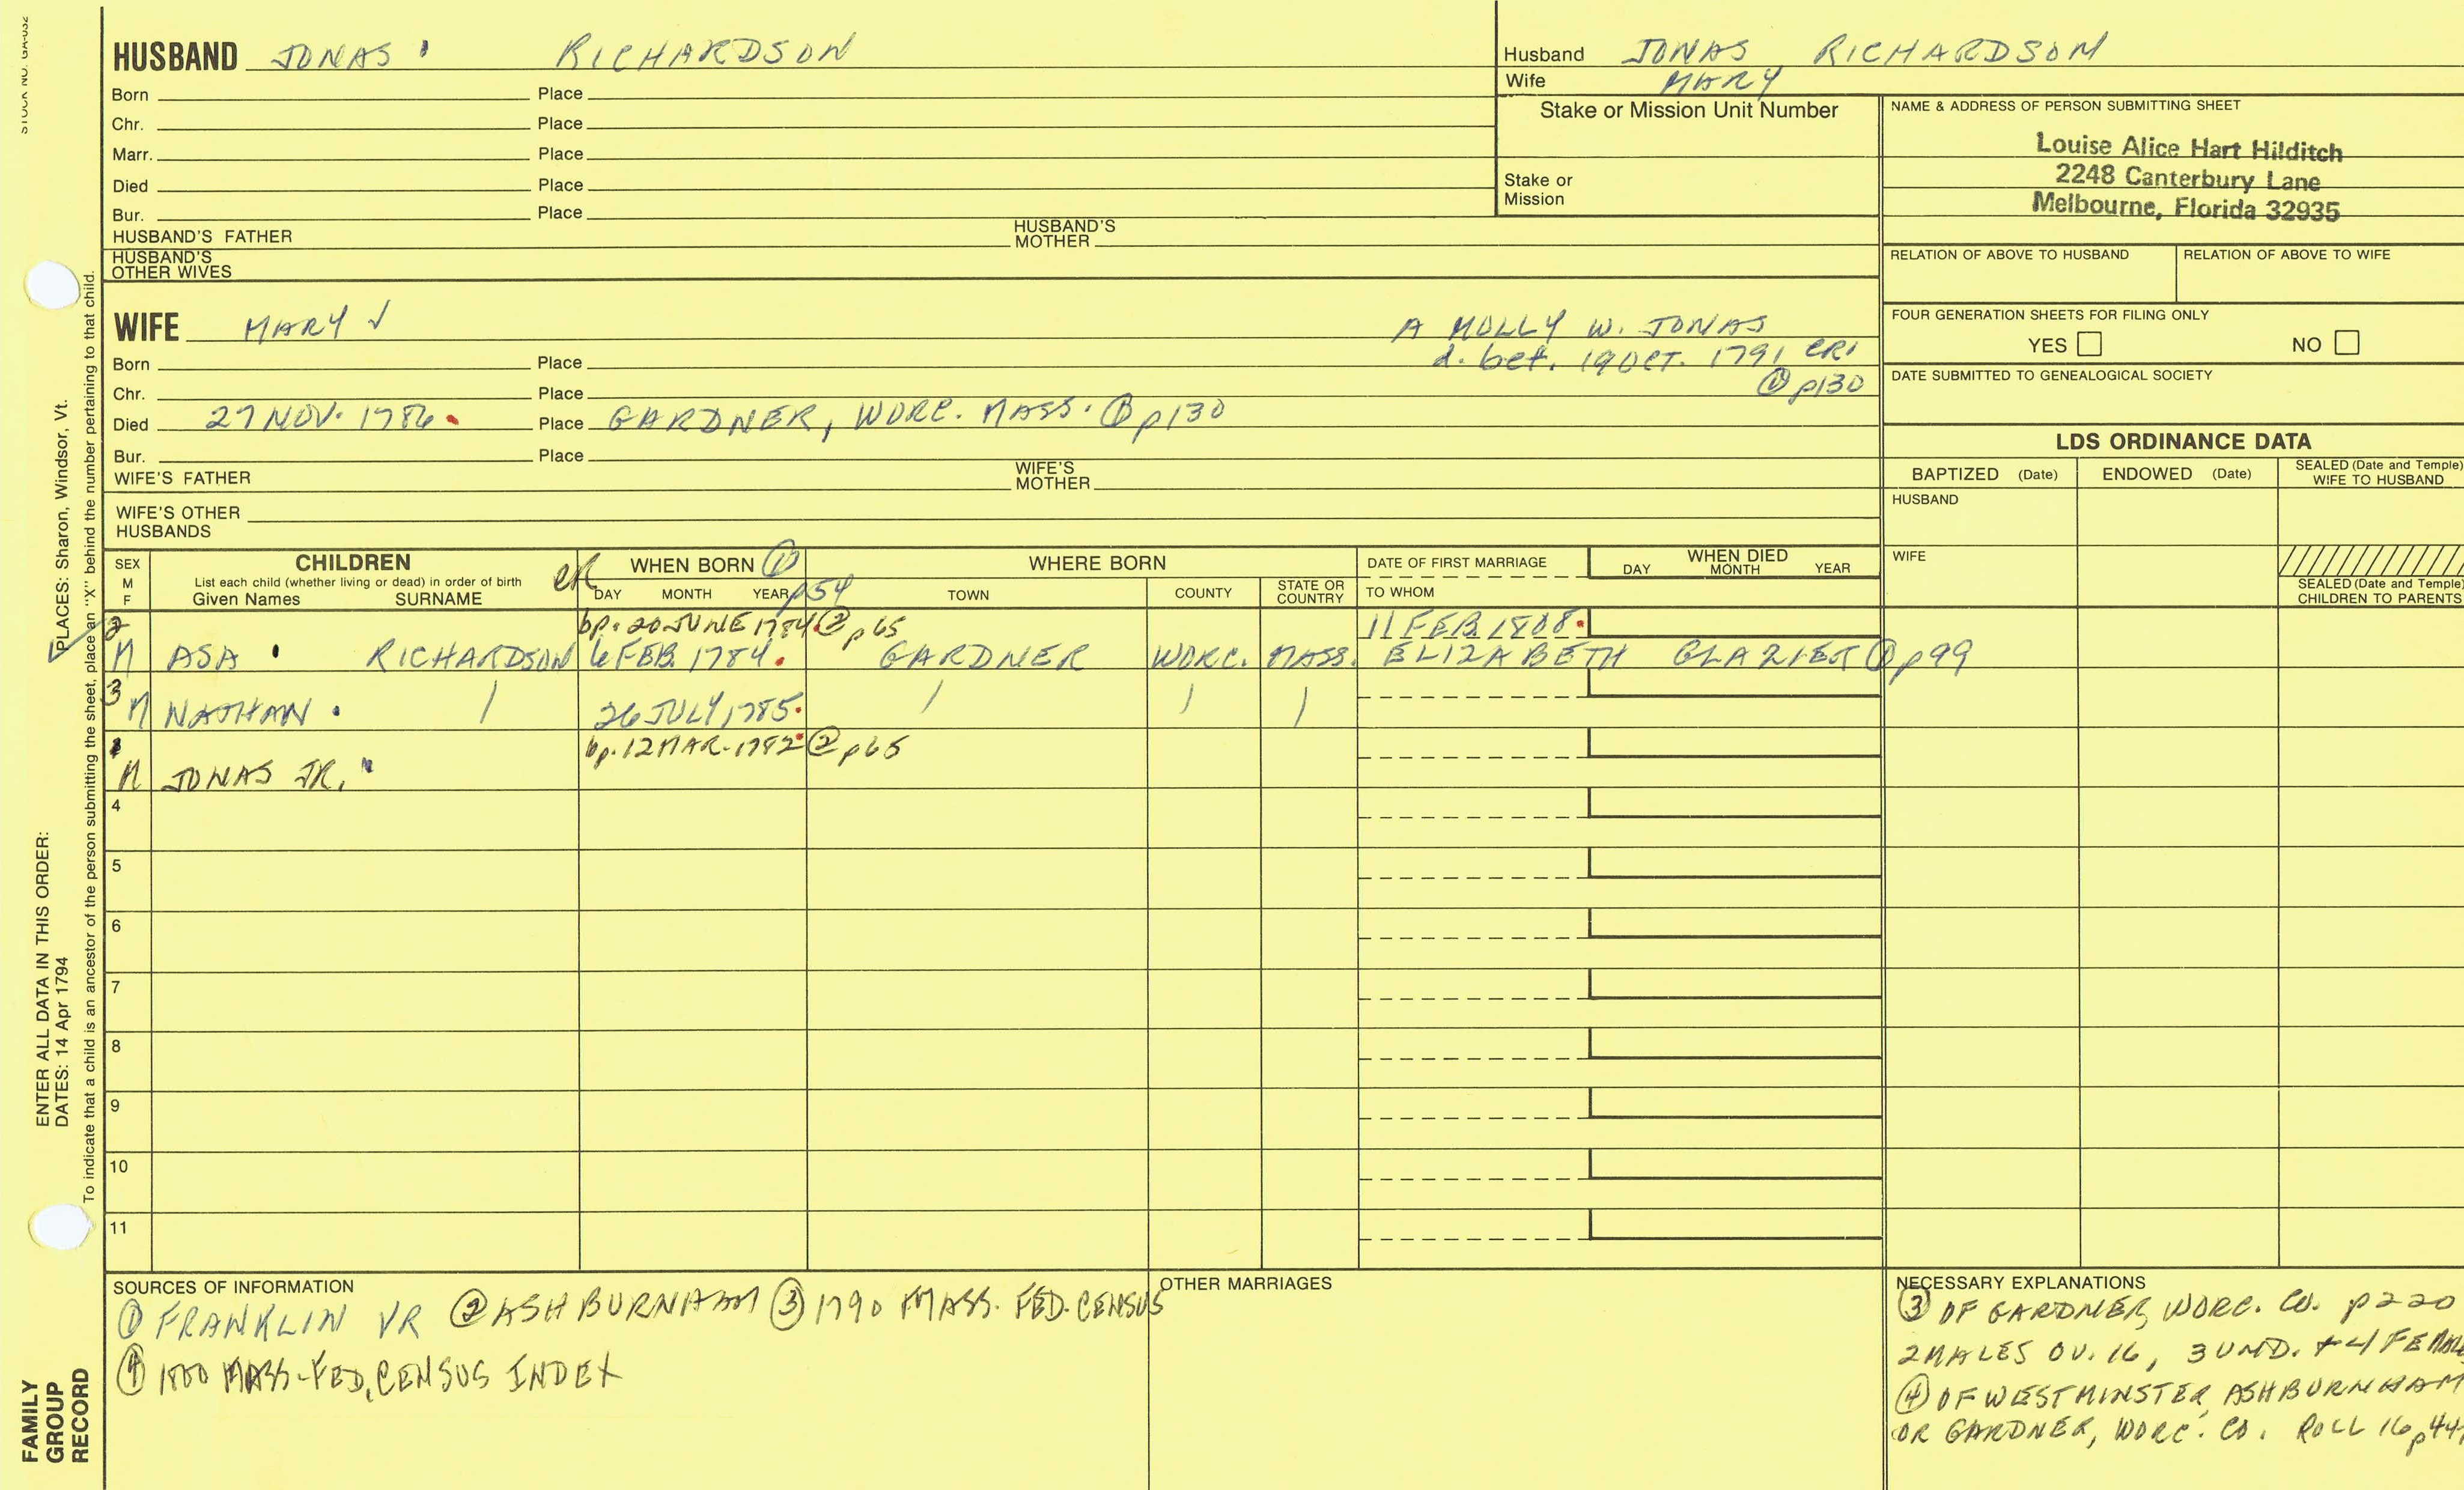 STOCK NO. GA-032
HUSBAND JONAS RICHARDSON
Born Place
Chr. Place
Marr. Place
Died Place
Bur. Place
HUSBAND'S FATHER HUSBAND'S MOTHER
HUSBAND'S OTHER WIVES
Husband JONAS RICHARDSON
Wife MARY
Stake or Mission Unit Number
Stake or Mission
NAME & ADDRESS OF PERSON SUBMITTING SHEET
Louise Alice Hart Hilditch
2248 Canterbury Lane
Melbourne, Florida 32935
RELATION OF ABOVE TO HUSBAND RELATION OF ABOVE TO WIFE
FOUR GENERATION SHEETS FOR FILING ONLY
YES NO
DATE SUBMITTED TO GENEALOGICAL SOCIETY
WIFE MARY √
A MOLLY W. JONAS
d. bet. 19 OCT. 1791 CR1
① p130
Born Place
Chr. Place
Died 27 NOV. 1786. Place GARDNER, WORC. MASS. ① p130
Bur. Place
WIFE'S FATHER WIFE'S MOTHER
WIFE'S OTHER HUSBANDS
LDS ORDINANCE DATA
BAPTIZED (Date) ENDOWED (Date) SEALED (Date and Temple) WIFE TO HUSBAND
HUSBAND
WIFE
SEALED (Date and Temple) CHILDREN TO PARENTS
SEX M F
CHILDREN
List each child (whether living or dead) in order of birth
Given Names SURNAME
WHEN BORN ①
p54
DAY MONTH YEAR
WHERE BORN
TOWN COUNTY STATE OR COUNTRY
DATE OF FIRST MARRIAGE
TO WHOM
WHEN DIED
DAY MONTH YEAR
2 bp. 20 JUNE 1784. ② p65 11 FEB. 1808.
M ASA RICHARDSON 6 FEB. 1784. GARDNER WORC. MASS. ELIZABETH ① p99
3
M NATHAN . / 26 JULY 1785. / / /
1 bp. 12 MAR. 1782 ② p65
M JONAS JR.
4
5
6
7
8
9
10
11
SOURCES OF INFORMATION
① FRANKLIN VR ② ASHBURNHAM ③ 1790 MASS. FED. CENSUS
④ 1800 MASS. FED. CENSUS INDEX
OTHER MARRIAGES
NECESSARY EXPLANATIONS
③ OF GARDNER, WORC. CO. p220
2 MALES OV. 16, 3 UND. + 4 FEMALE
④ OF WESTMINSTER, ASHBURNHAM
OR GARDNER, WORC. CO. ROLL 16 p44
ENTER ALL DATA IN THIS ORDER:
DATES: 14 Apr 1794 PLACES: Sharon, Windsor, Vt.
To indicate that a child is an ancestor of the person submitting the sheet, place an "X" behind the number pertaining to that child.
FAMILY
GROUP
RECORD